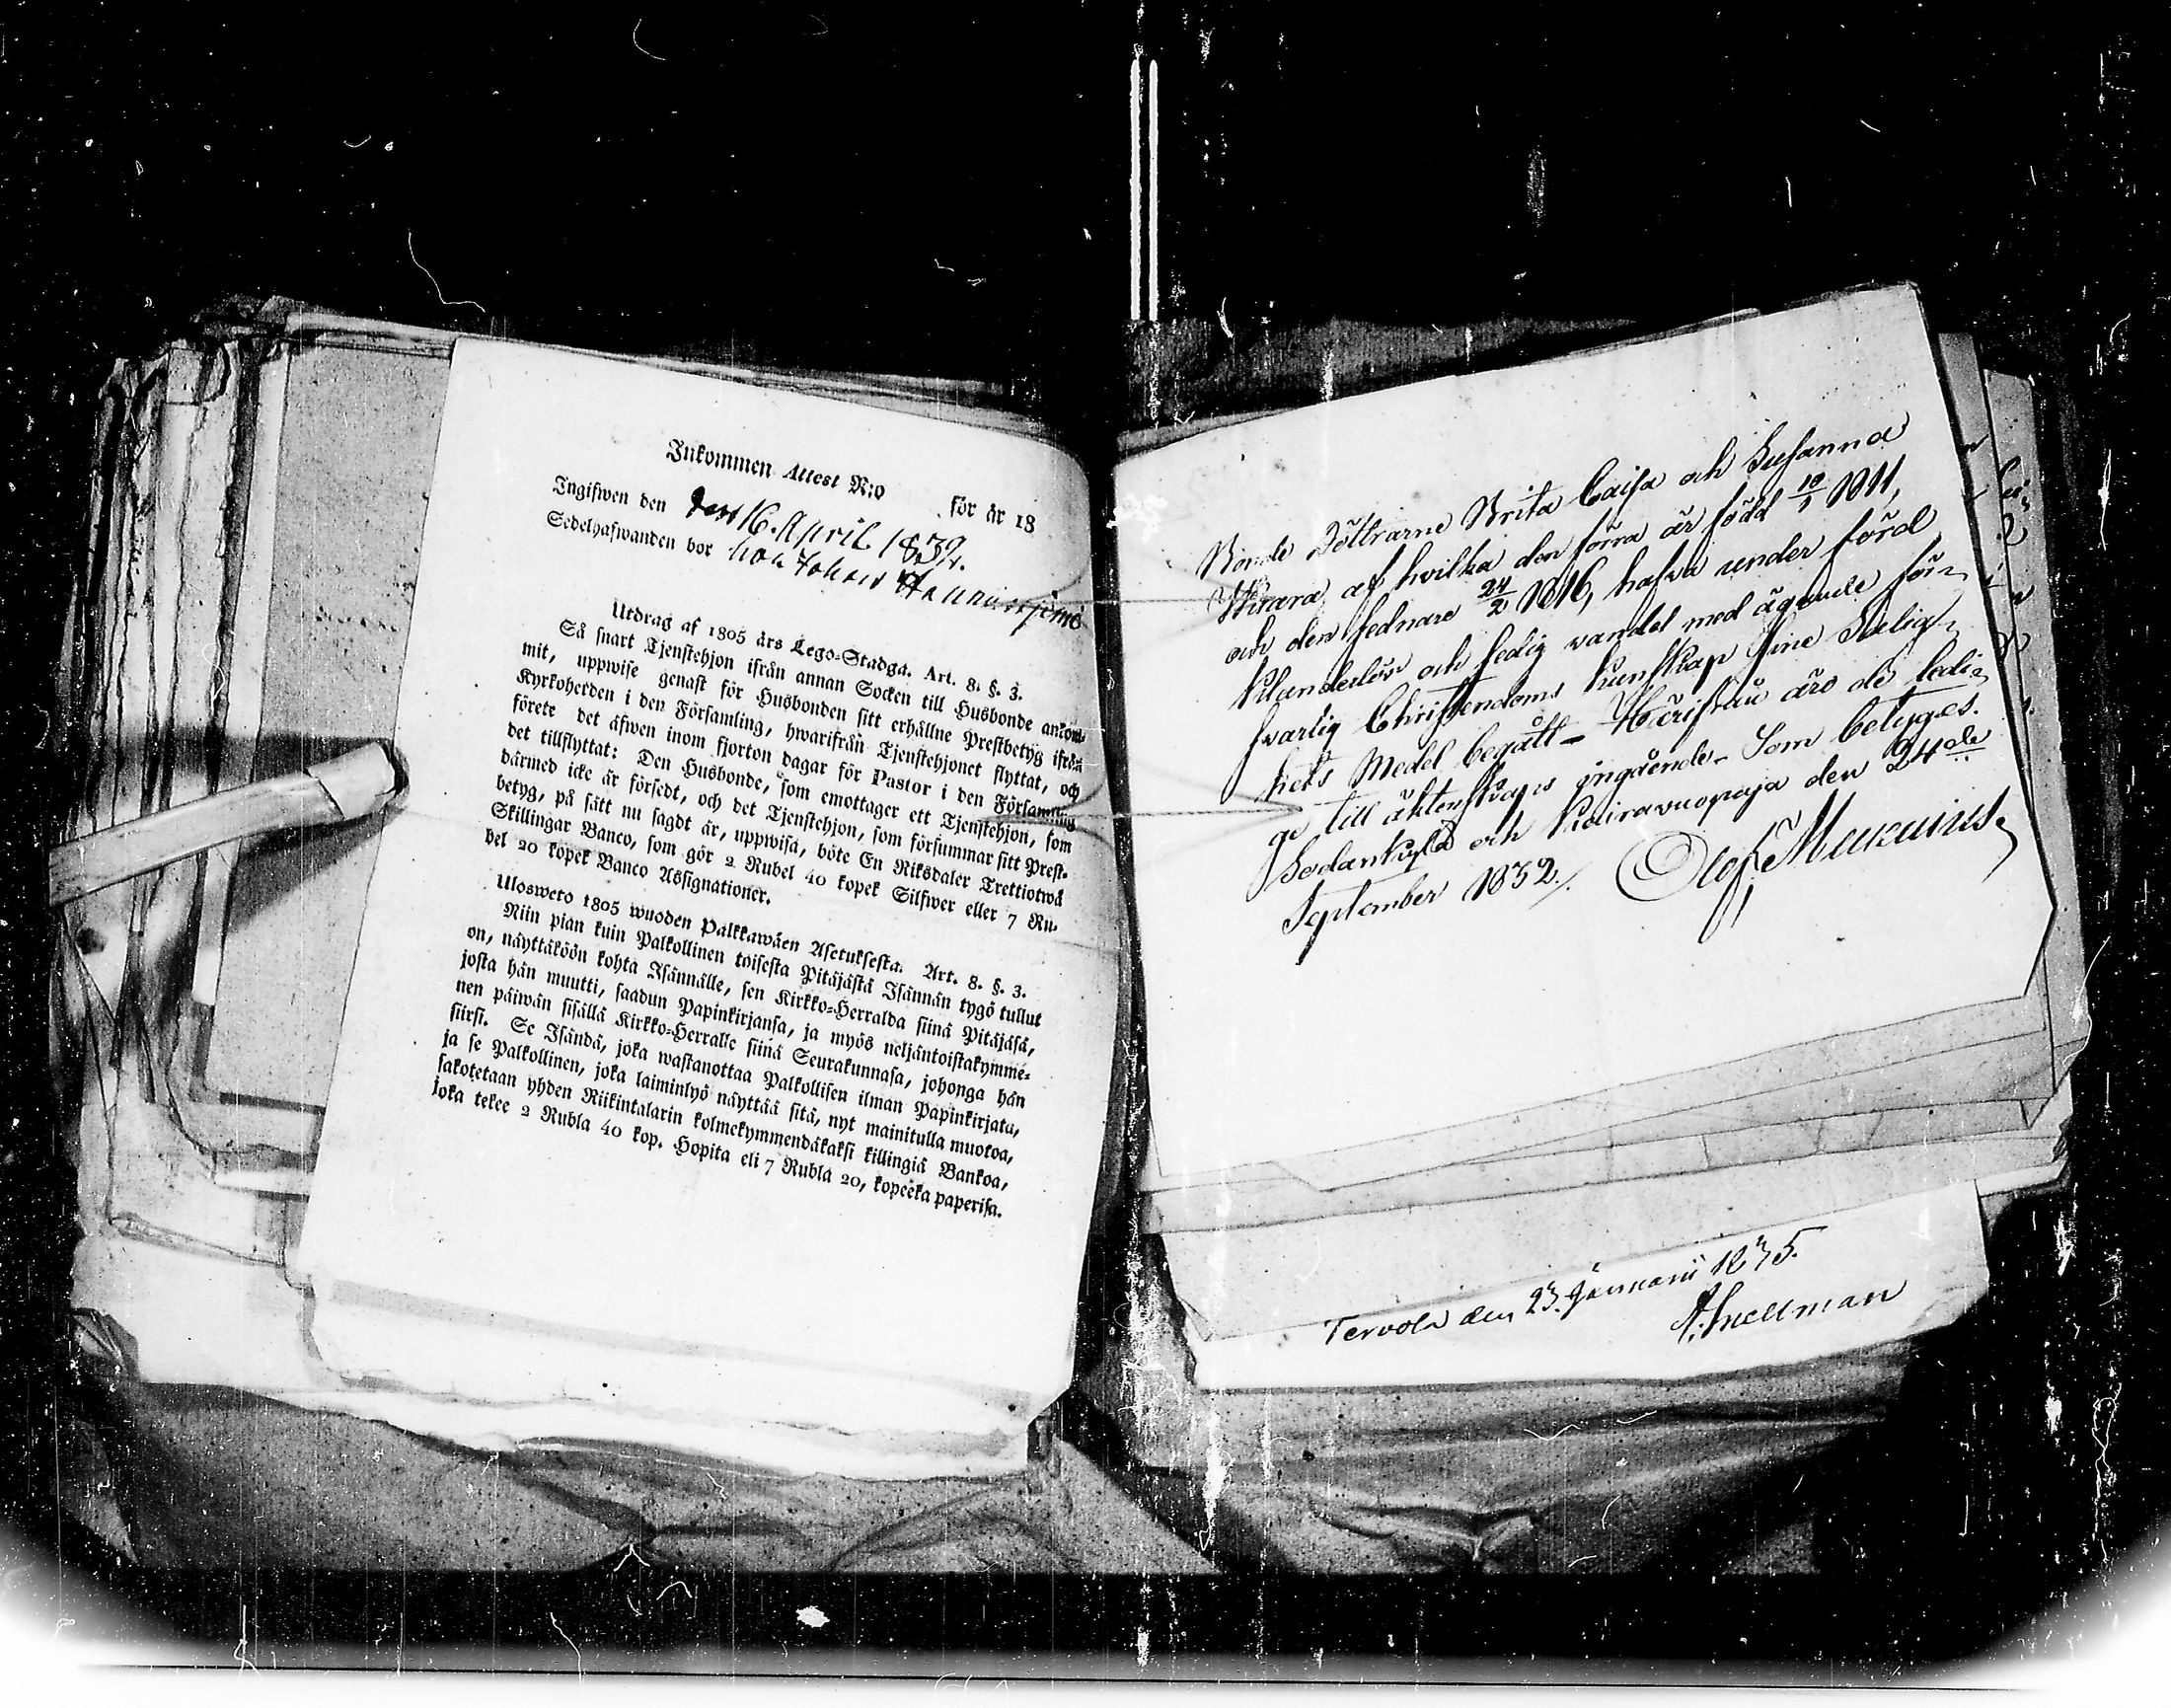 Inkommen Attest N:o för år 18
Ingifwen den den 16. April 1832.
Sedelhafwanden bor hos Johan
Utdrag af 1805 års Lego-Stadga. Art. 8. §. 3.
Så snart Tjenstehjon ifrån annan Socken till Husbonde ankom-
mit, uppwise genast för Husbonden sitt erhållne Prestbetyg ifrån
Kyrkoherden i den Församling, hwarifrån Tjenstehjonet flyttat, och
förete det äfwen inom fjorton dagar för Pastor i den Församling
det tillflyttat: Den Husbonde, som emottager ett Tjenstehjon, som
därmed icke är försedt, och det Tjenstehjon, som försummar sitt Prest-
betyg, på sätt nu sagdt är, uppwisa, böte En Riksdaler Trettiotwå
Skillingar Banco, som gör 2 Rubel 40 kopek Silfwer eller 7 Ru-
bel 20 kopek Banco Assignationer.
Ulosweto 1805 wuoden Palkkawäen Asetuksesta. Art. 8. §. 3.
Niin pian kuin Palkollinen toisesta Pitäjästä Isännän tygö tullut
on, näyttäköön kohta Isännälle, sen Kirkko-Herralda siinä Pitäjäsä,
josta hän muutti, saadun Papinkirjansa, ja myös neljäntoistakymme-
nen päiwän sisällä Kirkko-Herralle siinä Seurakunnasa, johonga hän
siirsi. Se Isändä, joka wastanottaa Palkollisen ilman Papinkirjata,
ja se Palkollinen, joka laiminlyö näyttää sitä, nyt mainitulla muotoa,
sakotetaan yhden Riikintalarin kolmekymmendäkaksi killingiä Bankoa,
joka tekee 2 Rubla 40 kop. Hopita eli 7 Rubla 20, kopeeka paperisa.
Bonde Döttrarne Brita Caisa och Susanna
af hvilka den förra är född 10/1 1811,
och den sednare 24/2 1816, hafva under förd
klanderlös och sedig vandel med ägande för-
svarlig Christendoms kunskap sine Salig-
hets Medel begått - Härifrån äro de ledi-
ge till äktenskaps ingående. Som betygas.
Sodankylä och den 24de
September 1832./. Olof
Tervola den 23. Januarii 1835.
A. Snellman